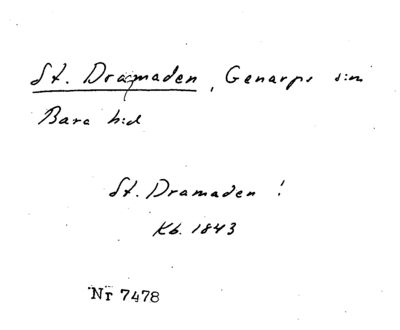 St. Dragmaden, Genarps sn
Bara hd
St. Dramaden !
Kb. 1843
Nr 7478